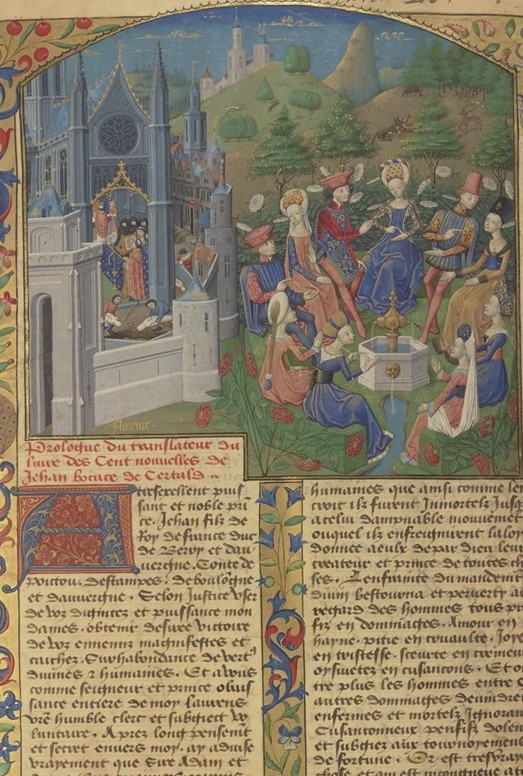 florence
Prologue du translateur du
livre des Cent nouvelles de
Jehan bocace de Certald
A tresexellent puis
sant et noble pri
ce. Jehan filz de
Roy de france duc
de Berry et dau
uergne. Conte de
poitou. destampes. de boulogne
et dauuergne. Selon Justice vser
de voz dignitez et puissance mon
daines. obtenir desiree victoire
de voz ennemiz magnifestes et
cachez. Surhabondance de vert'
diuines 2 humaines. Et a vous
comme seigneur et prince obeis
sance entiere de moy laurens
vr̄e humble clerc et subgiect vo
luntaire. Aprez long pensement
et secret enuers moy. ay aduise
vrayement que Sire Adam et
humaines que ainsi comme
ilz furent Inmortelz
a celui dampnable mouuemēt
ouquel ilz enfreignirent la loy
donnee a eulx de par dieu leur
createur et prince de toutes
ses. Lenfrainte du mandement
diuin bestourna et peruerty
regard des hommes tous
fiz en dommages. Amour en
hayne. pitie en cruaulte. Joye
en tristesse. seurte en
oysiuetez en cusancons. Et
tre plus les hommes entre
autres dommages
enfermes et mortelz Ignorans
Cusanconneux pensifz
et subgiez aux tournoyemens
de fortune. Or est